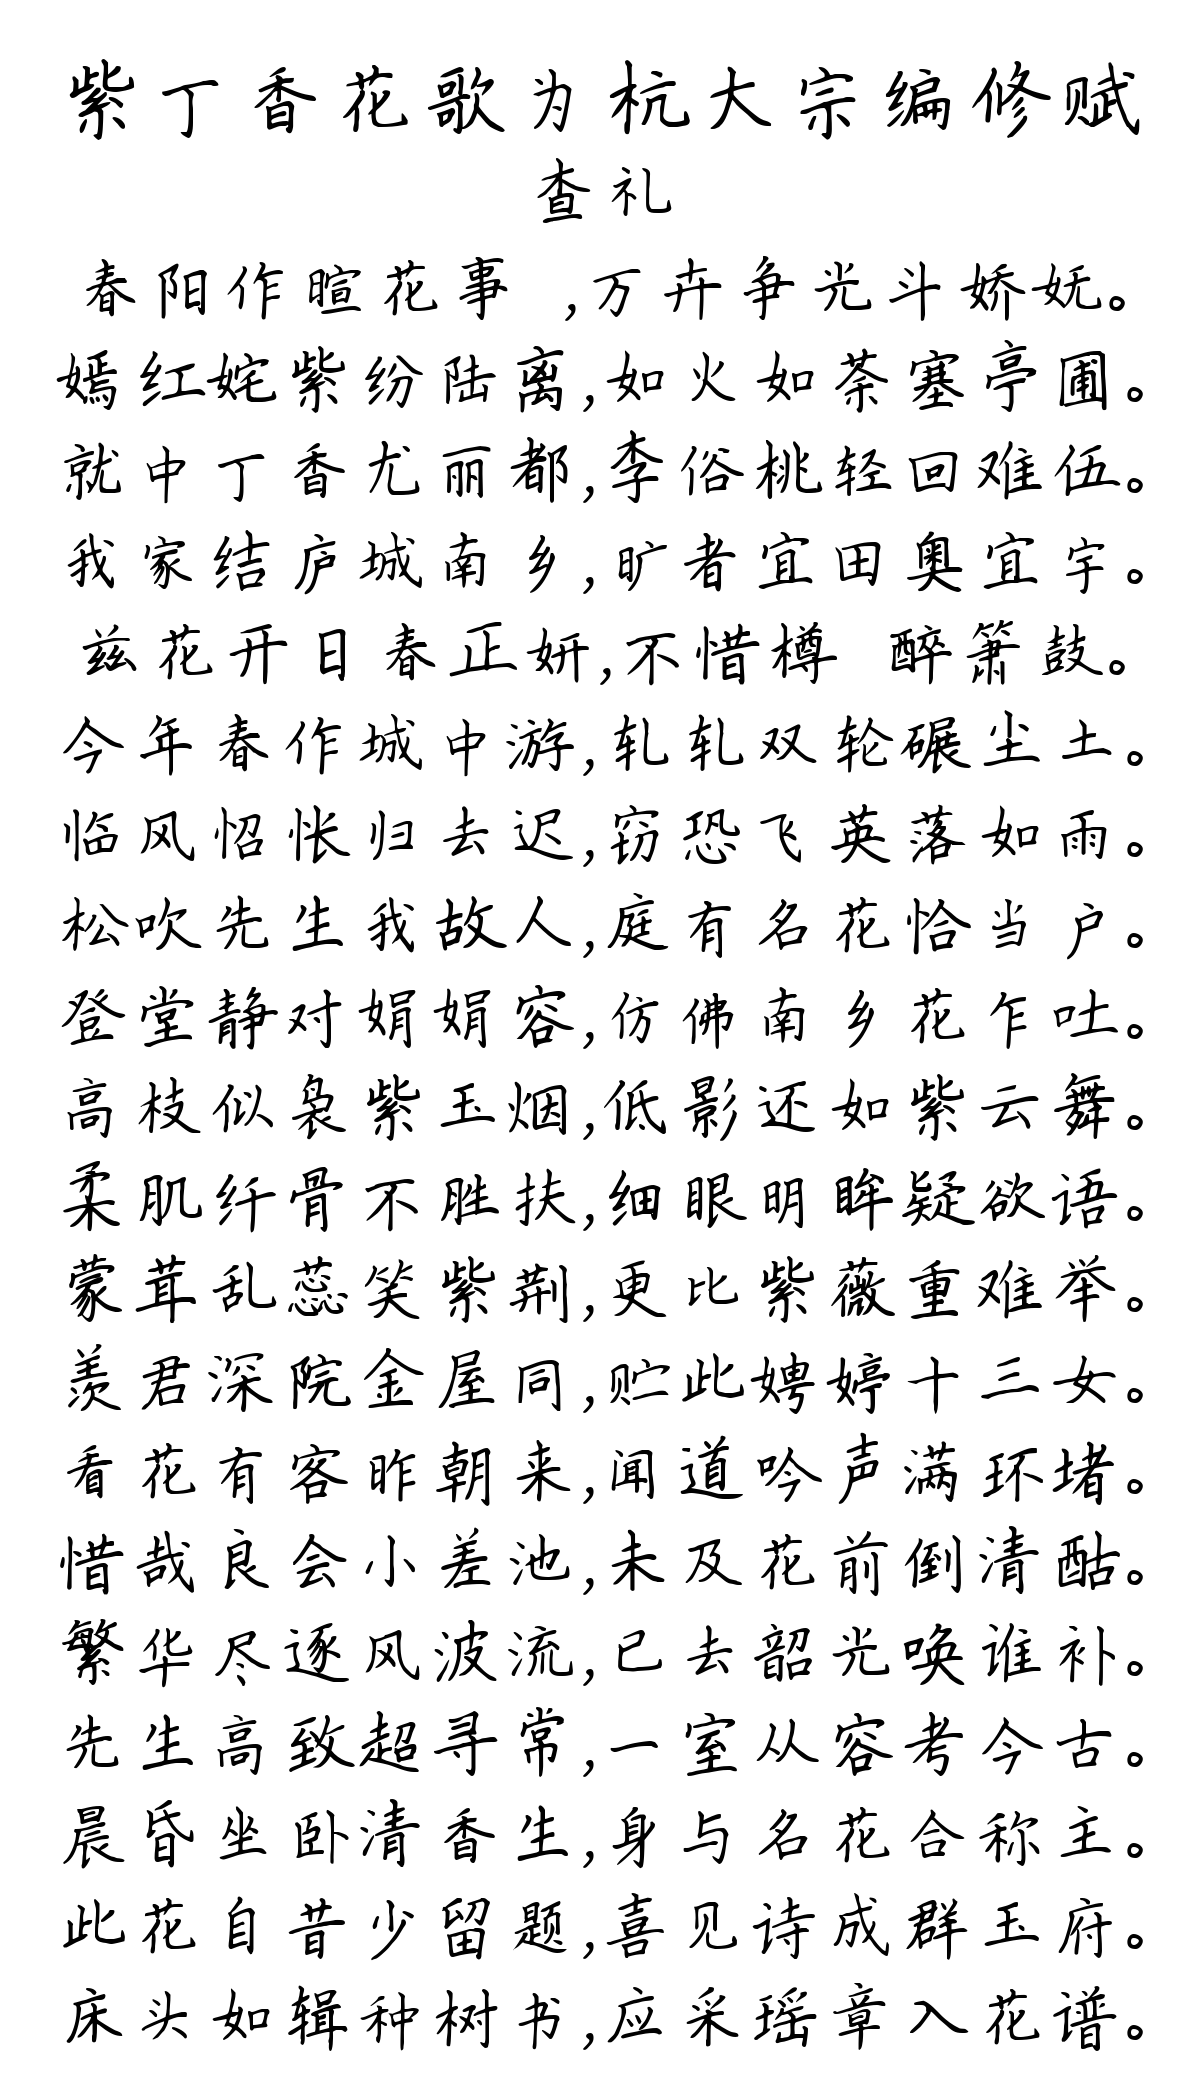 紫丁香花歌为杭大宗编修赋
查礼
春阳作暄花事 ,万卉争光斗娇妩。
嫣红姹紫纷陆离,如火如荼塞亭圃。
就中丁香尤丽都,李俗桃轻回难伍。
我家结庐城南乡,旷者宜田奥宜宇。
兹花开日春正妍,不惜樽 醉箫鼓。
今年春作城中游,轧轧双轮碾尘土。
临风怊怅归去迟,窃恐飞英落如雨。
松吹先生我故人,庭有名花恰当户。
登堂静对娟娟容,仿佛南乡花乍吐。
高枝似袅紫玉烟,低影还如紫云舞。
柔肌纤骨不胜扶,细眼明眸疑欲语。
蒙茸乱蕊笑紫荆,更比紫薇重难举。
羡君深院金屋同,贮此娉婷十三女。
看花有客昨朝来,闻道吟声满环堵。
惜哉良会小差池,未及花前倒清酤。
繁华尽逐风波流,已去韶光唤谁补。
先生高致超寻常,一室从容考今古。
晨昏坐卧清香生,身与名花合称主。
此花自昔少留题,喜见诗成群玉府。
床头如辑种树书,应采瑶章入花谱。